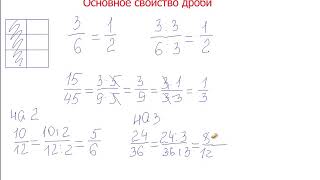 Основное свойство дроби
3/6 = 1/2   3:3/6:3 = 1/2
15/45 = 3·5/9·5 = 3/9 = 3·1/3·3 = 1/3
на 2   на 3
10/12 = 10:2/12:2 = 5/6   24/36 = 24:3/36:3 = 8/12